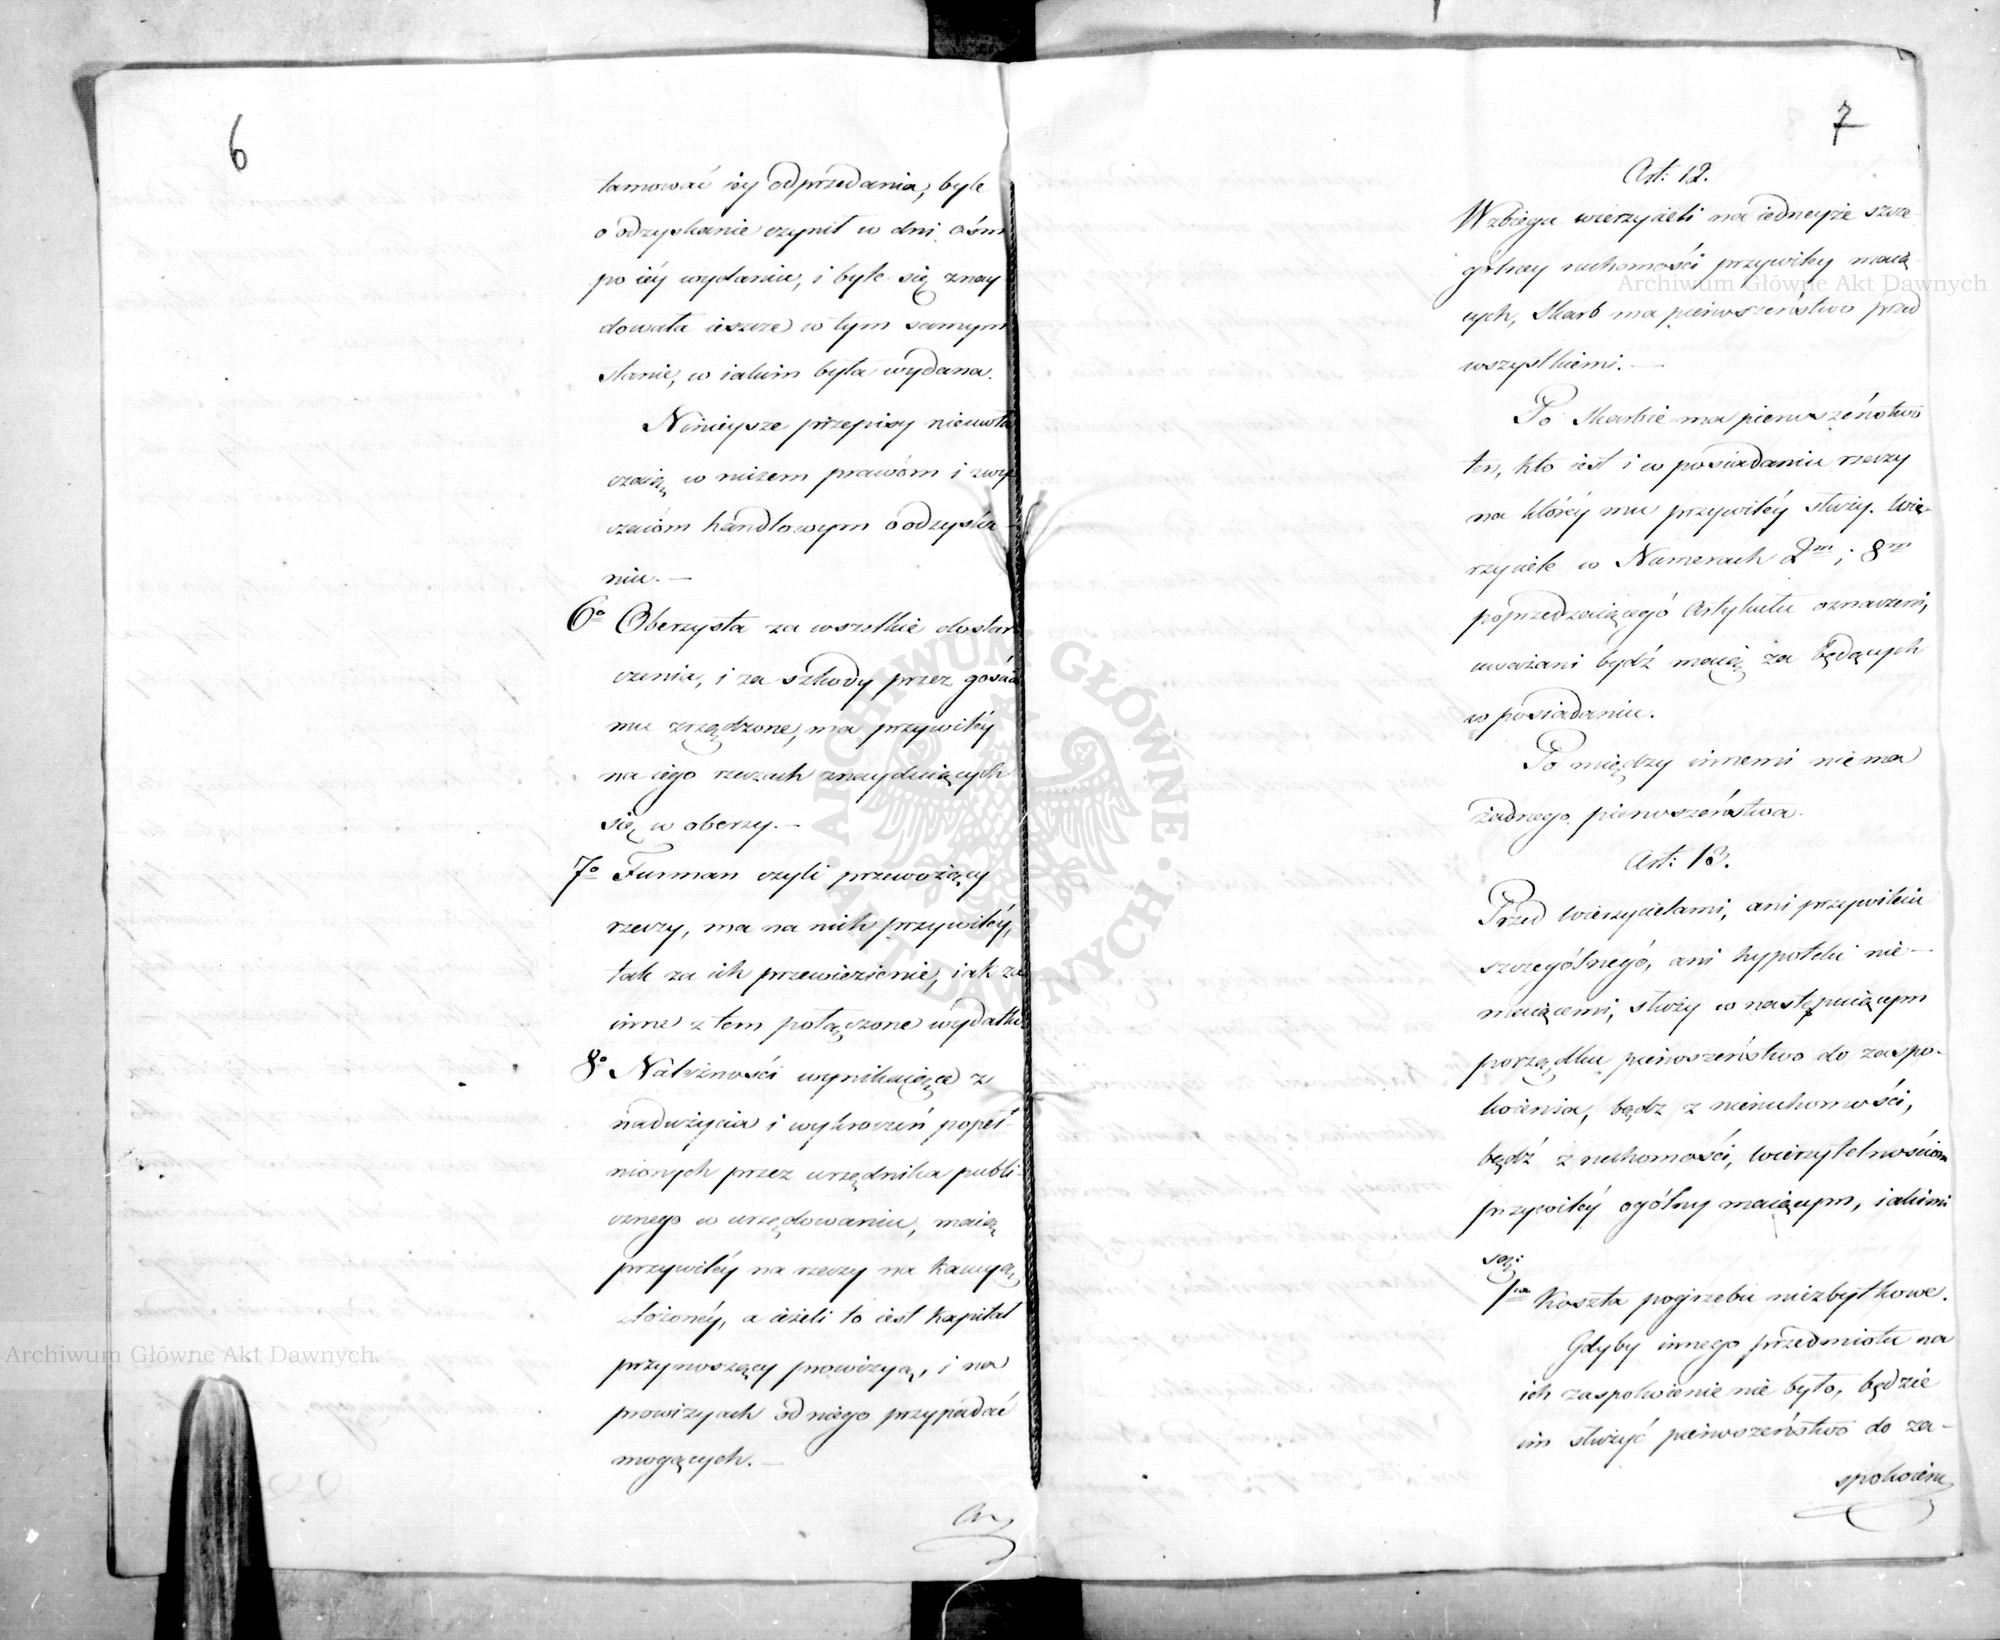 6
tamować iey odprzedania, byle
o odzyskanie czynił w dni ośm
po iéy wydaniu, i byle się znay
dowała ieszcze w tym samym
stanie, w iakim była wydana.
Ninieysze przepisy nieuwła
czaią w niczem prawóm i zwy
czaióm handlowym o odzyska-
niu. —
6o Oberzysta za wszelkie dostar
czenia, i za szkody przez gościa
mu zrządzone, ma przywiléy
na iego rzeczach znayduiących
się w oberzy. —
7o Furman czyli przewożący
rzeczy, ma na nich przywiléy,
tak za ich przewiezienie, iak za
inne z tem połączone wydatki
8o Należności wynikaiące z
nadużycia i wykroczeń popeł-
nionych przez urzędnika publi-
cznego w urzędowaniu, maią
przywiléy na rzeczy na kaucyą
złożonéy, a ieżeli to iest kapitał
przynoszący prowizyą, i na
prowizyach od niego przypadać
mogących. —
7
Art: 12.
W zbiegu wierzycieli na iedneyże szcze-
gólney ruchomości przywiley maią-
cych, Skarb ma pierwszeństwo przed
wszystkiemi. —
Po Skarbie ma pierwszeństwo
ten, kto iest i w posiadaniu rzeczy
na któréy mu przywiléy służy. Wie-
rzyciele w Numerach 2m i 8m
poprzedzaiącego Artykułu oznaczeni,
uważani bydź maią za będących
w posiadaniu.
Po między innemi nie ma
żadnego pierwszeństwa.
Art: 13.
Przed wierzycielami, ani przywileiu
szczególnégo, ani hypoteki nie—
maiącemi, służy w następuiącym
porządku pierwszeństwo do zaspo-
koienia, bądź z nieruchomości,
bądź z ruchomości, wierzytelnościom
przywiléy ogólny maiącym, iakimi
są:
1mo Koszta pogrzebu niezbytkowe.
Gdyby innego przedmiotu na
ich zaspokoienie nie było, będzie
im służyć pierwszeństwo do za-
spokoienia
Archiwum Główne Akt Dawnych
Archiwum Główne Akt Dawnych
ARCHIWUM GŁÓWNE AKT DAWNYCH